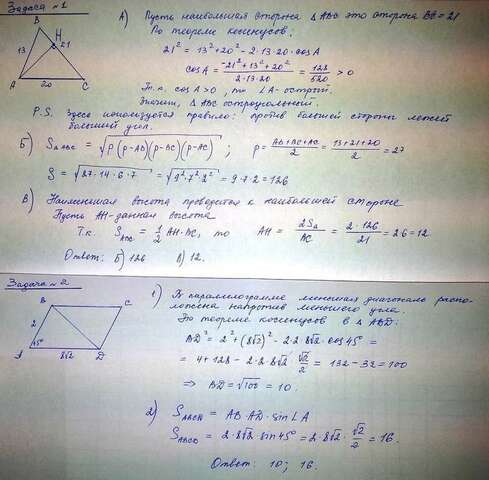 Задача №1
B
H
13
21
A
20
C
А) Пусть наибольшая сторона Δ ABC это сторона BC = 21
По теореме косинусов:
21² = 13² + 20² - 2·13·20·cos A
cos A = (-21² + 13² + 20²) / (2·13·20) = 128 / 520 > 0
Т.к. cos A > 0, то ∠A - острый.
Значит, Δ ABC остроугольный.
P.S. Здесь используется правило: против большей стороны лежит
больший угол.
Б) S Δ ABC = √(p(p-AB)(p-BC)(p-AC)) ; p = (AB+BC+AC) / 2 = (13+21+20) / 2 = 27
S = √(27·14·6·7) = √(9²·7²·2²) = 9·7·2 = 126
В) Наименьшая высота проводится к наибольшей стороне
Пусть AH - данная высота
Т.к. S ABC = 1/2 AH·BC, то AH = 2S Δ / AC = 2·126 / 21 = 2·6 = 12
Ответ: Б) 126 В) 12.
Задача №2
B
C
2
A
45°
8√2
D
1) В параллелограмме меньшая диагональ распо-
ложена напротив меньшего угла.
По теореме косинусов в Δ ABD:
BD² = 2² + (8√2)² - 2·2·8√2·cos 45° =
= 4 + 128 - 2·2·8√2 · √2/2 = 132 - 32 = 100
⇒ BD = √100 = 10.
2) S ABCD = AB·AD·sin ∠A
S ABCD = 2·8√2·sin 45° = 2·8√2·√2/2 = 16.
Ответ: 10; 16.